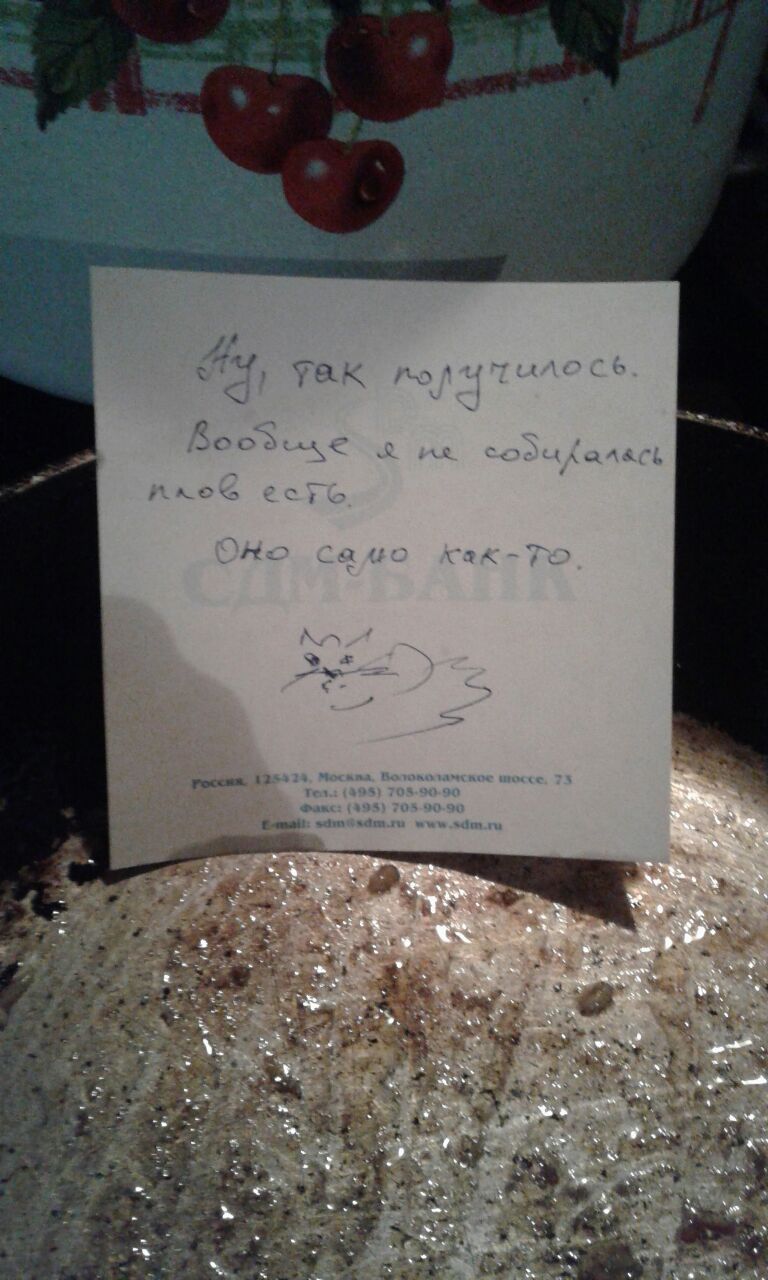 Ну, так получилось.
Вообще я не собиралась
плов есть.
Оно само как-то.
СДМ-БАНК
Россия, 125424, Москва, Волоколамское шоссе, 73
Тел.: (495) 705-90-90
Факс: (495) 705-90-90
E-mail: sdm@sdm.ru www.sdm.ru